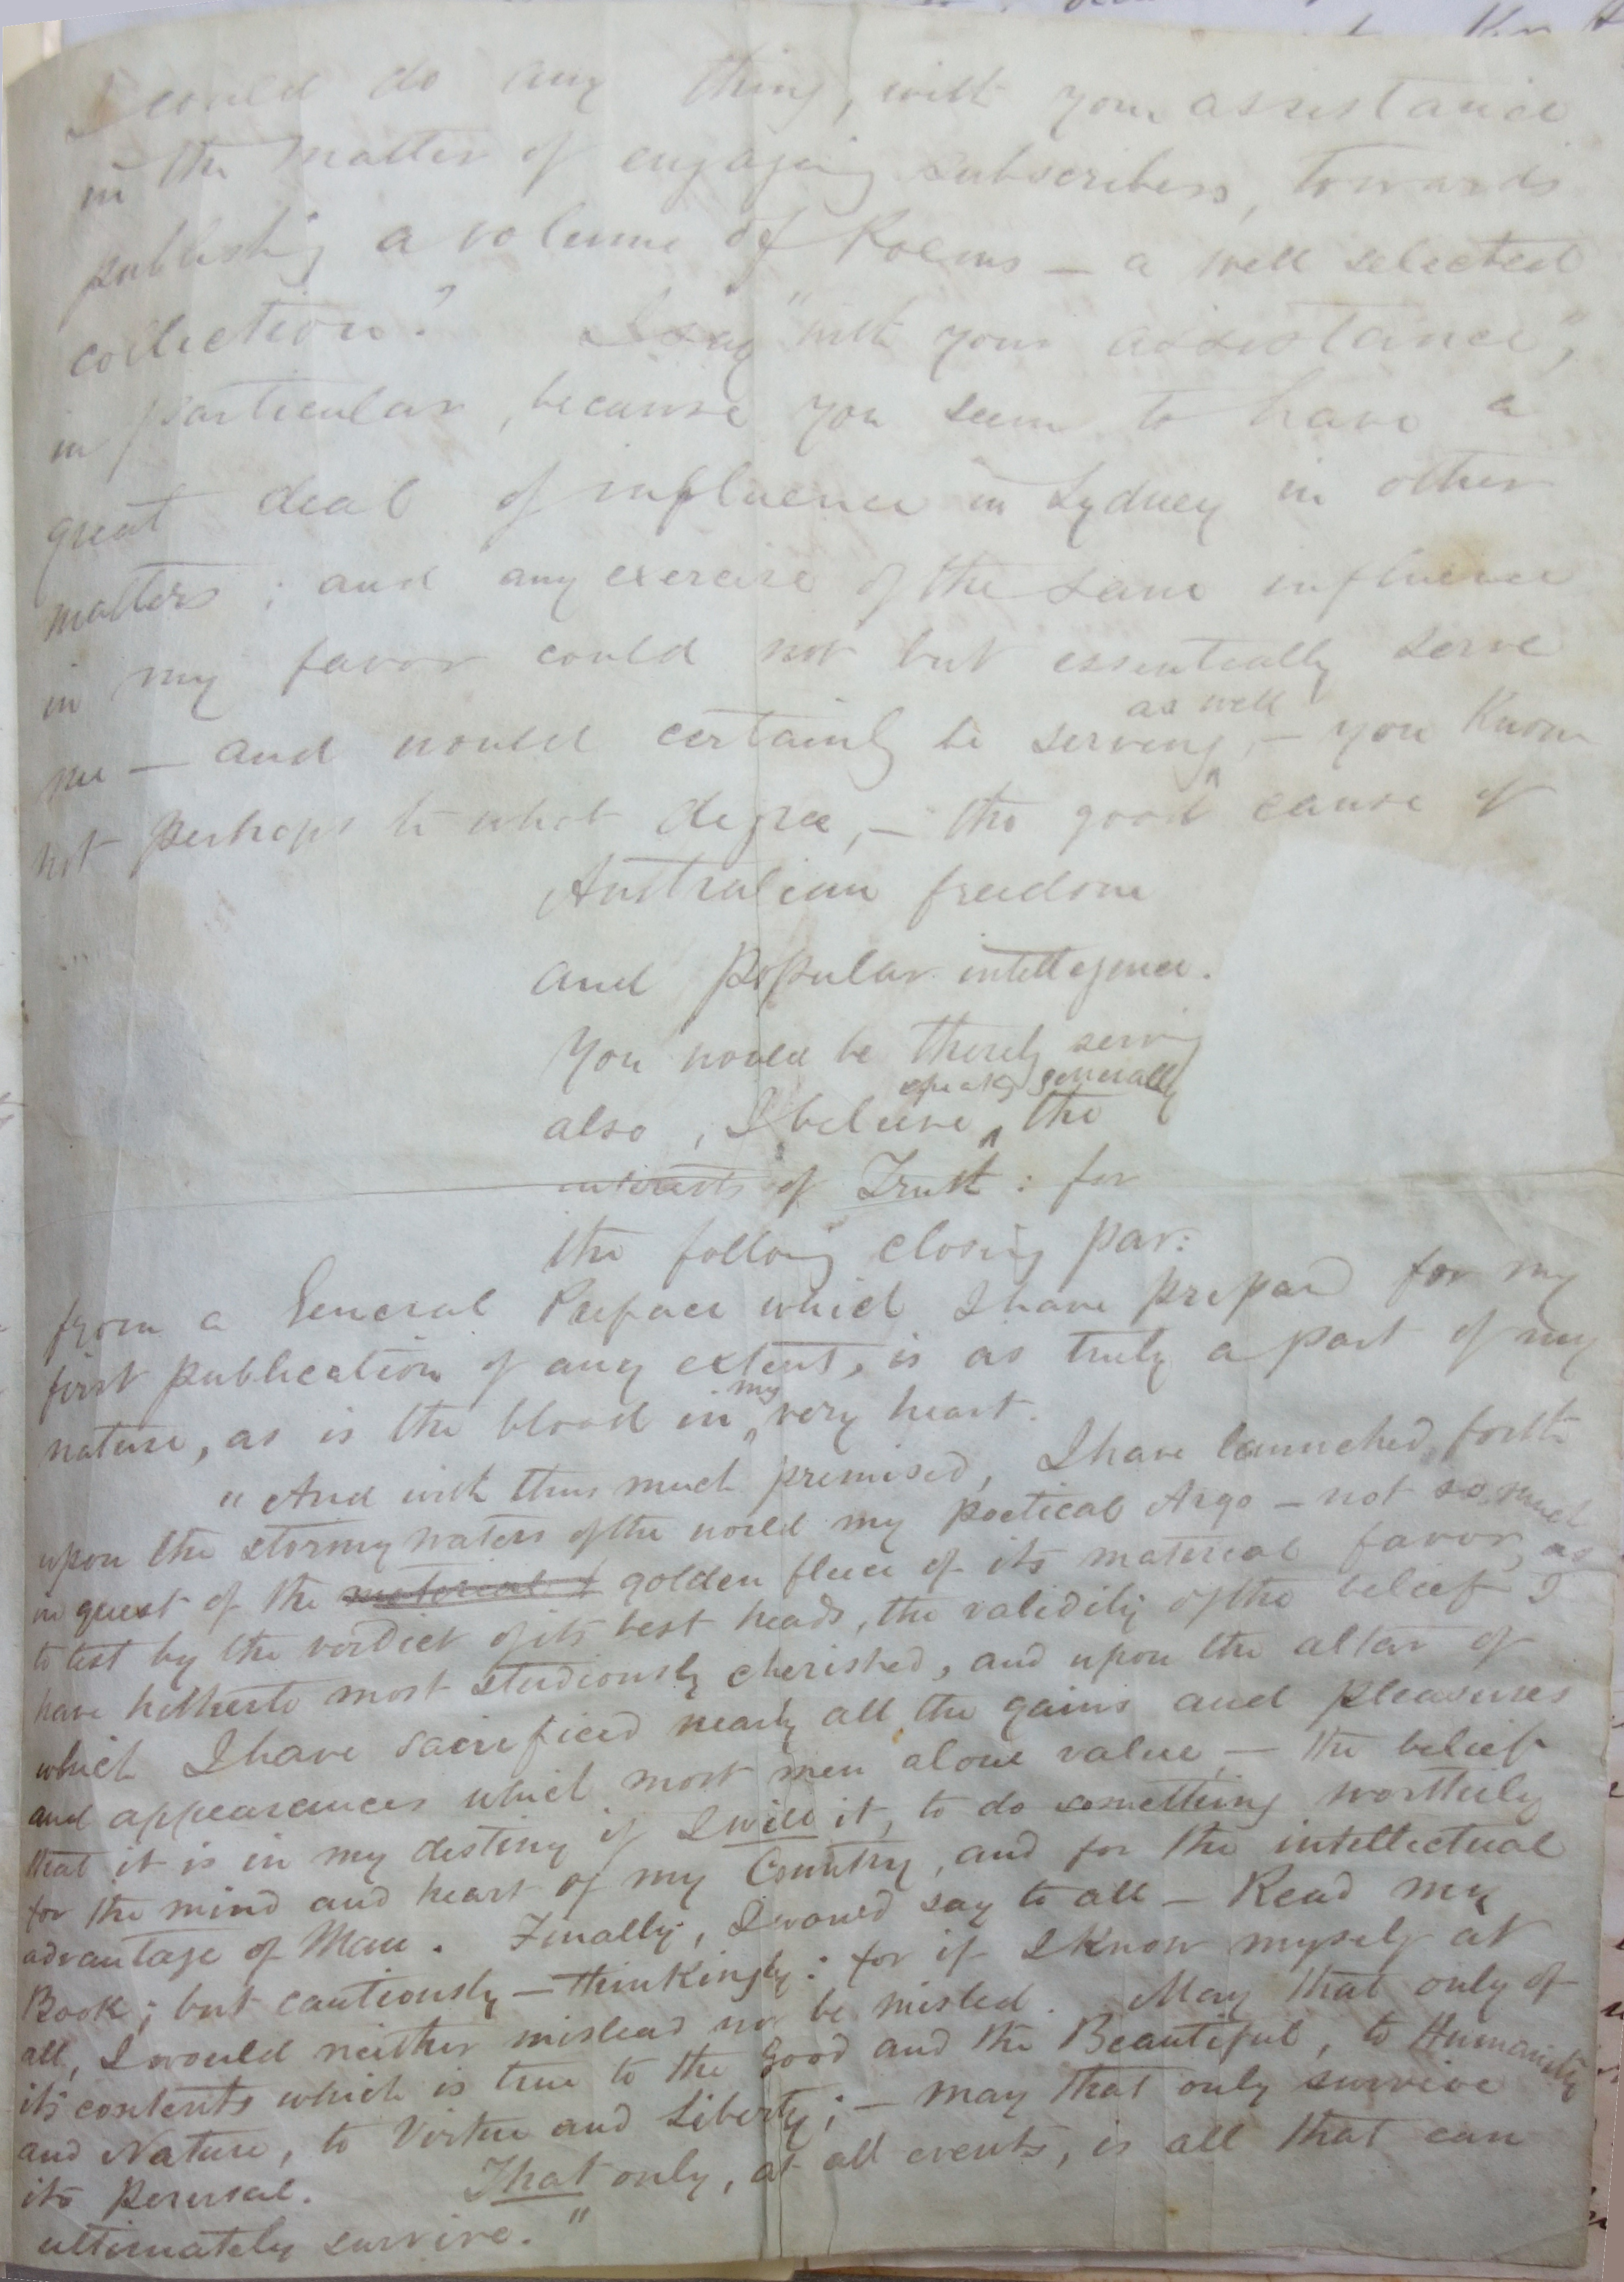 I could do any thing, with your assistance
in the matter of engaging subscribers, towards
publishing a volume of Poems — a well selected
collection? I say "with your assistance",
in particular, because you seem to have a
great deal of influence in Sydney in other
matters; and any exercise of the same influence
in my favor could not but essentially serve
me — and would certainly be serving, as well — you know
not perhaps to what degree, — the good cause of
Australian freedom
and popular intelligence.
You would be thereby serving
also, I believe, speakg generally the
interests of Truth: for
the followg closing par:
from a General Preface which I have prepard for my
first publication of any extent, is as truly a part of my
nature, as is the blood in my very heart.
"And with thus much premised, I have launched forth
upon the stormy waters of the world my poetical Argo — not so much
in quest of the material f golden fleece of its material favor, as
to test by the verdict of its best heads, the validity of the belief I
have hitherto most studiously cherished, and upon the altar of
which I have sacrificed nearly all the gains and pleasures
and appearances which most men alone value, — the belief
that it is in my destiny if I will it, to do something worthily
for the mind and heart of my Country, and for the intellectual
advantage of Man. Finally, I would say to all — Read my
Book; but cautiously — thinkingly: for if I know myself at
all, I would neither mislead nor be misled. May that only of
its contents which is true to the Good and the Beautiful, to Humanity
and Nature, to Virtue and Liberty; — may that only survive
its perusal. That only, at all events, is all that can
ultimately survive."